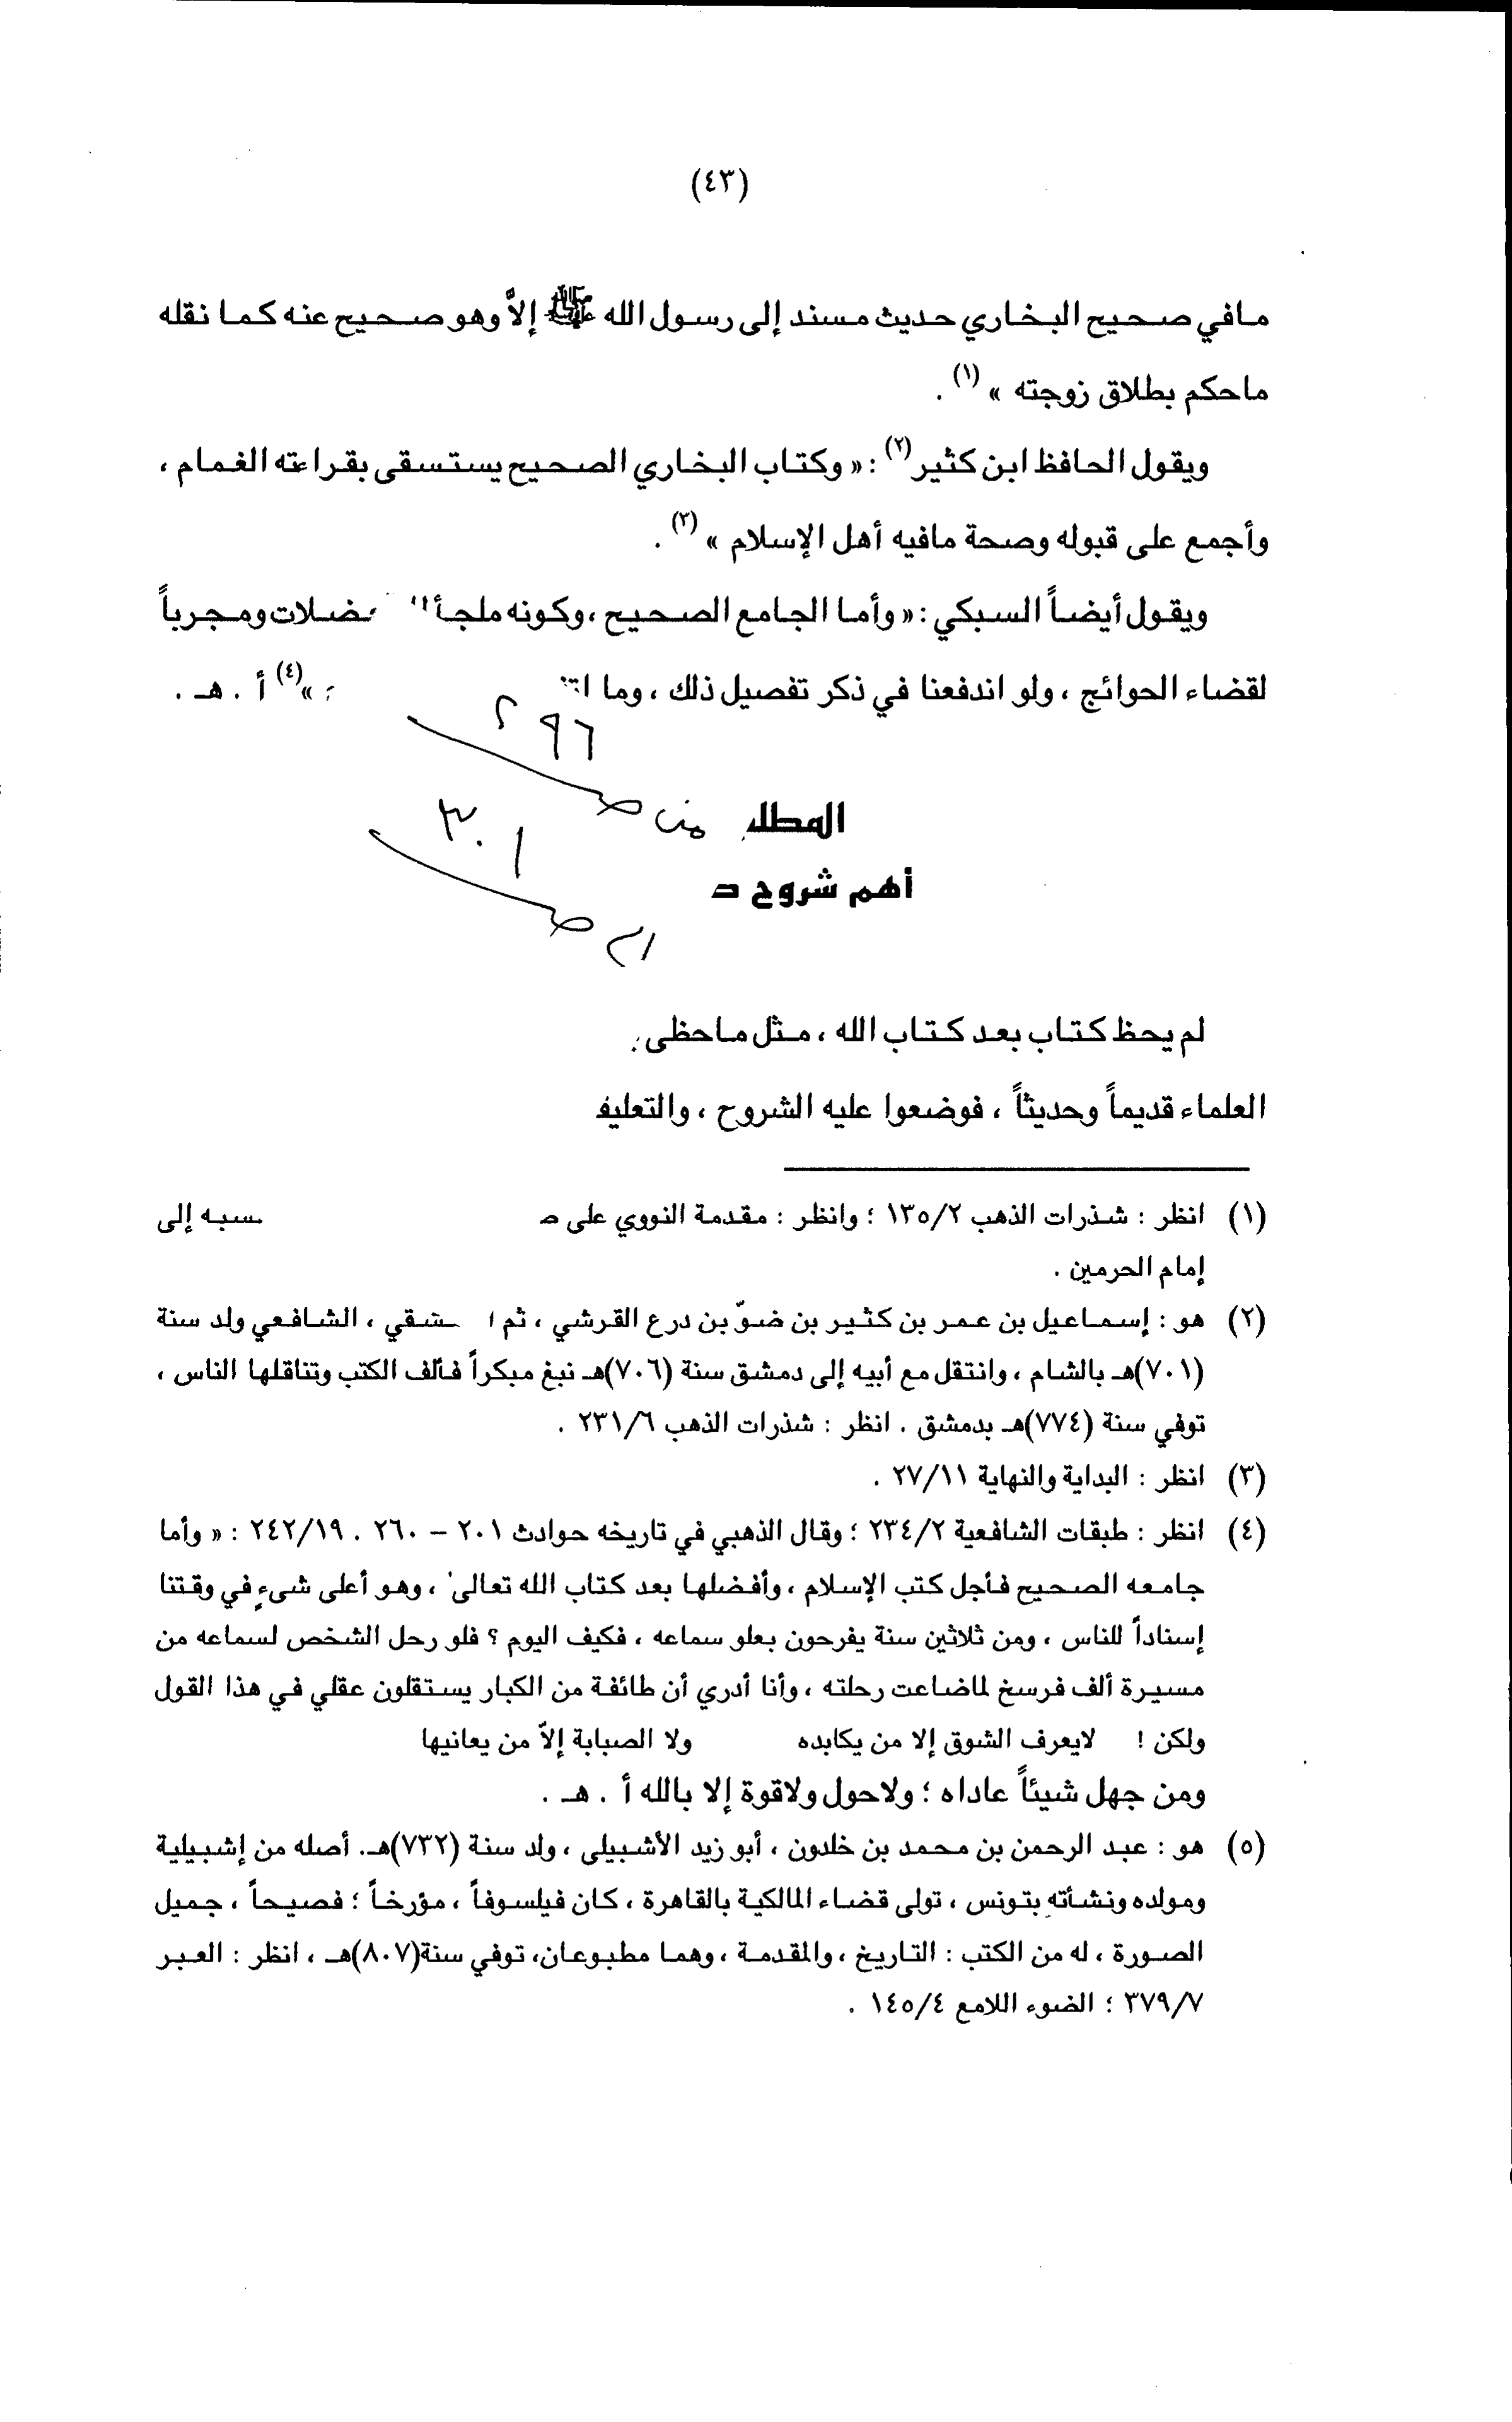 (٤٣)
مافي صحيح البخاري حديث مسند إلى رسول الله ﷺ إلاَّ وهو صحيح عنه كما نقله
ماحكم بطلاق زوجته » (١) .
ويقول الحافظ ابن كثير(٢) : « وكتاب البخاري الصحيح يستسقى بقراءته الغمام ،
وأجمع على قبوله وصحة مافيه أهل الإسلام » (٣) .
ويقول أيضاً السبكي : « وأما الجامع الصحيح ، وكونه ملجأ ومجرباً
لقضاء الحوائج ، ولو اندفعنا في ذكر تفصيل ذلك ، وما »(٤) أ . هـ .
٢٩٦
من صـ
٣٠١
إلى صـ
أهم شروح
لم يحظ كتاب بعد كتاب الله ، مثل ماحظى
العلماء قديماً وحديثاً ، فوضعوا عليه الشروح ،
(١) انظر : شذرات الذهب ١٣٥/٢ ؛ وانظر : مقدمة النووي على إلى
إمام الحرمين .
(٢) هو : إسماعيل بن عمر بن كثير بن ضوّ بن درع القرشي ، ثم ، الشافعي ولد سنة
(٧٠١)هـ بالشام ، وانتقل مع أبيه إلى دمشق سنة (٧٠٦)هـ نبغ مبكراً فألف الكتب وتناقلها الناس ،
توفي سنة (٧٧٤)هـ بدمشق . انظر : شذرات الذهب ٢٣١/٦ .
(٣) انظر : البداية والنهاية ٢٧/١١ .
(٤) انظر : طبقات الشافعية ٢٣٤/٢ ؛ وقال الذهبي في تاريخه حوادث ٢٠١ - ٢٦٠ . ٢٤٢/١٩ : « وأما
جامعه الصحيح فأجل كتب الإسلام ، وأفضلها بعد كتاب الله تعالى ، وهو أعلى شىءٍ في وقتنا
إسناداً للناس ، ومن ثلاثين سنة يفرحون بعلو سماعه ، فكيف اليوم ؟ فلو رحل الشخص لسماعه من
مسيرة ألف فرسخ لماضاعت رحلته ، وأنا أدري أن طائفة من الكبار يستقلون عقلي في هذا القول
ولكن ! لايعرف الشوق إلا من يكابده ولا الصبابة إلاّ من يعانيها
ومن جهل شيئاً عاداه ؛ ولاحول ولاقوة إلا بالله أ . هـ .
(٥) هو : عبد الرحمن بن محمد بن خلدون ، أبو زيد الأشبيلى ، ولد سنة (٧٣٢)هـ. أصله من إشبيلية
ومولده ونشأته بتونس ، تولى قضاء المالكية بالقاهرة ، كان فيلسوفاً ، مؤرخاً ؛ فصيحاً ، جميل
الصورة ، له من الكتب : التاريخ ، والمقدمة ، وهما مطبوعان، توفي سنة(٨٠٧)هـ ، انظر : العبر
٣٧٩/٧ ؛ الضوء اللامع ١٤٥/٤ .